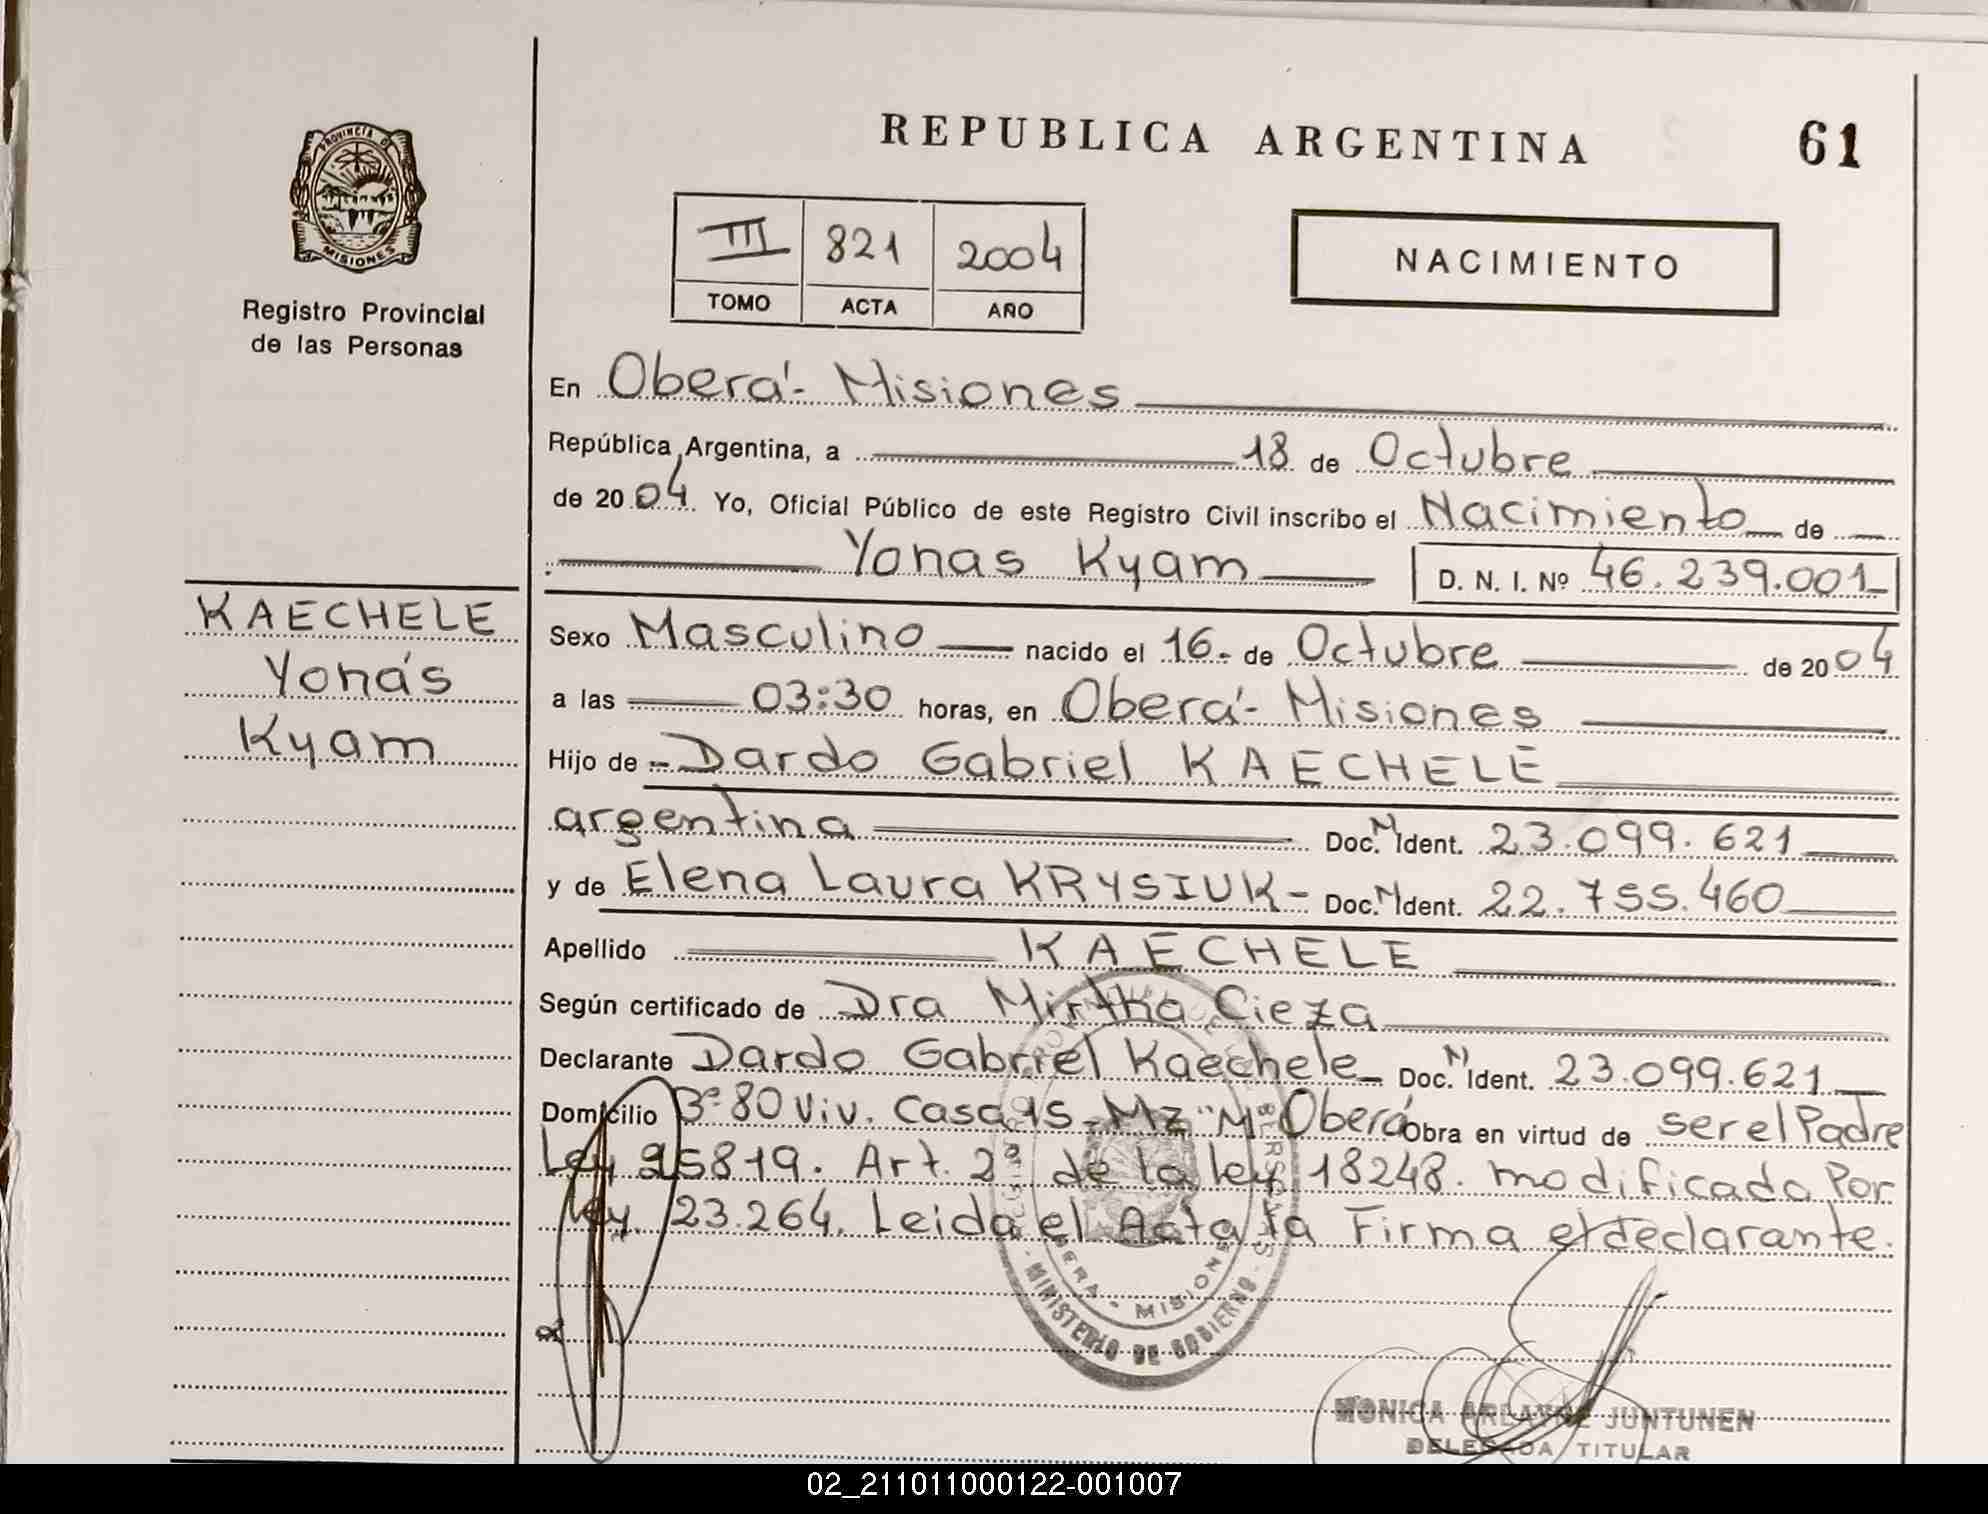 REPUBLICA ARGENTINA
61
PROVINCIA DE
MISIONES
Registro Provincial
de las Personas
III 821 2004
TOMO ACTA AÑO
NACIMIENTO
En Oberá - Misiones
República Argentina, a 18 de Octubre
de 2004 Yo, Oficial Público de este Registro Civil inscribo el Nacimiento de
Yonas Kyam D. N. I. Nº 46.239.001
KAECHELE
Yonás
Kyam
Sexo Masculino nacido el 16- de Octubre de 2004
a las 03:30 horas, en Oberá - Misiones
Hijo de - Dardo Gabriel KAECHELE
argentina Doc. N Ident. 23.099.621
y de Elena Laura KRYSIUK - Doc. N Ident. 22.755.460
Apellido KAECHELE
Según certificado de Dra Mirtha Cieza
Declarante Dardo Gabriel Kaechele Doc. N Ident. 23.099.621
Domicilio Bº 80 Viv. Casa 15 Mz "M" Oberá Obra en virtud de ser el Padre
Ley 25819. Art. 2º de la ley 18248. modificada Por
ley. 23.264. Leida el Acta la Firma el declarante.
OBERA - MISIONES
MINISTERIO DE GOBIERNO
MONICA ARLAYNE JUNTUNEN
DELEGADA TITULAR
02_211011000122-001007